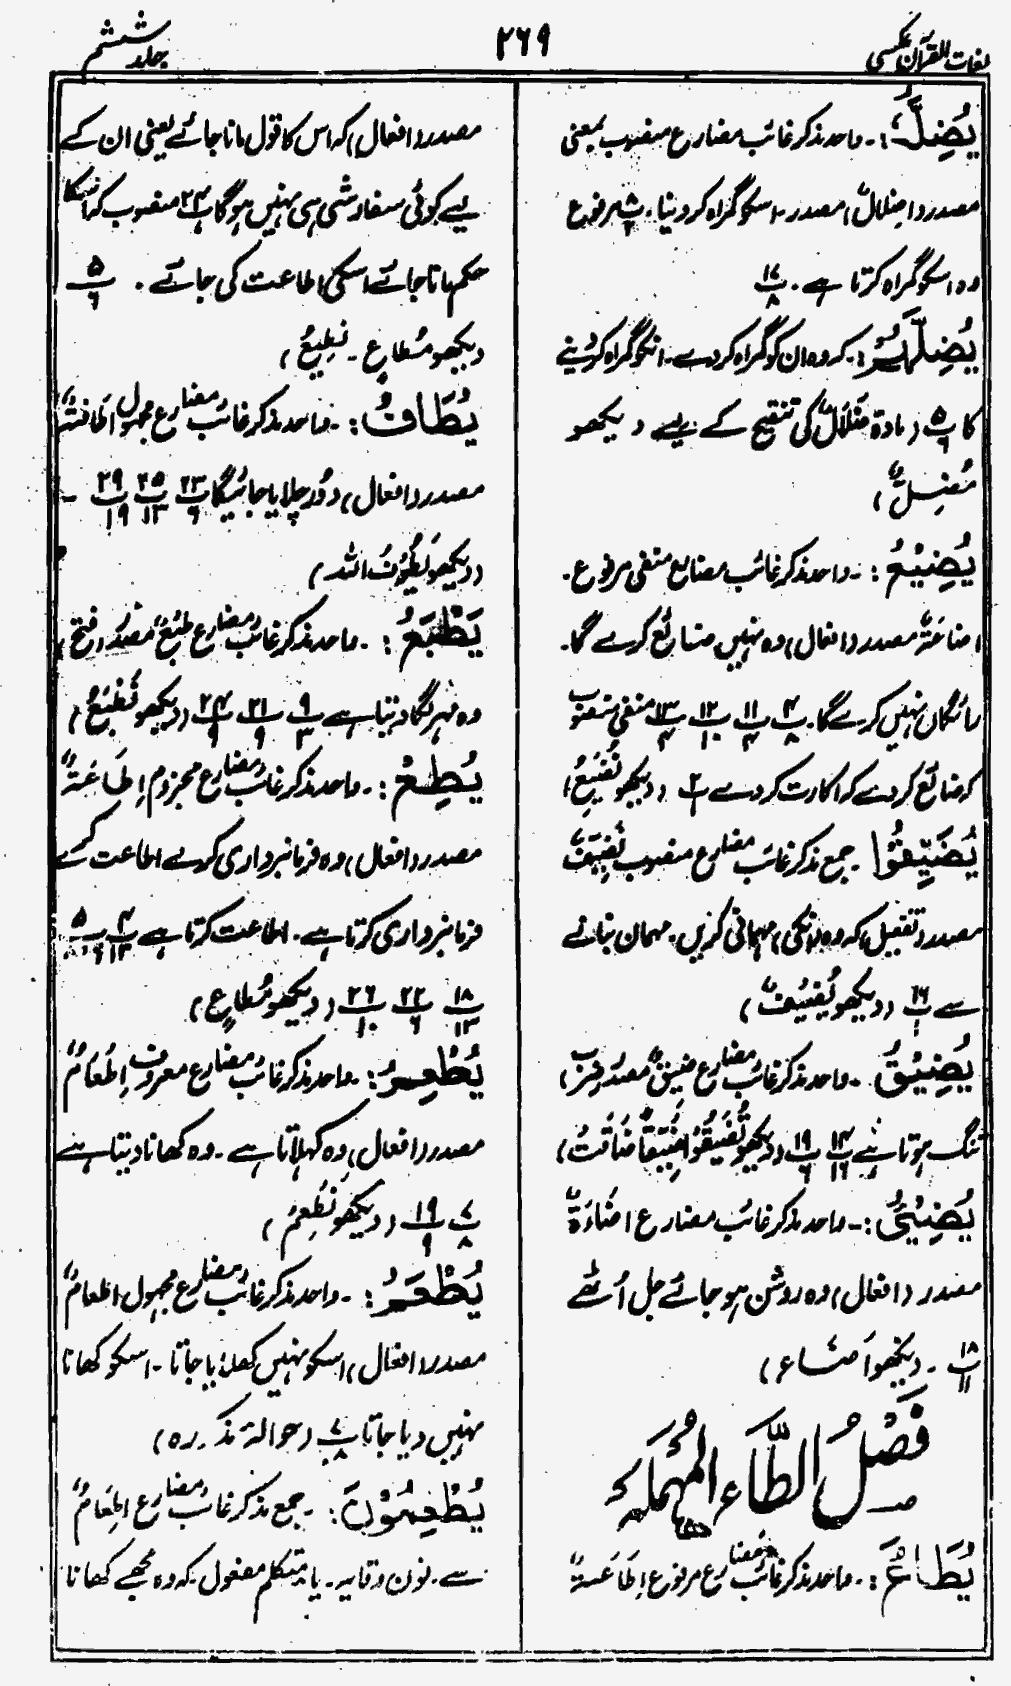 لغات القرآن عکسی
۲۶۹
جلد ششم
یُضِلَّ :۔ واحد مذکر غائب مضارع منصوب بمعنی
مصدر (اضلالٌ) مصدر۔ اسکو گمراہ کر دینا۔ مرفوع
وہ اسکو گمراہ کرتا ہے۔ ۱۷/۸
:۔ کہ وہ ان کو گمراہ کردے۔ انکو گمراہ کردینے
کا ۵/۶ (مادۃ ضلالٌ کی تنقیح کے لیے دیکھو
مُضِلٌّ)
یُضِیْعُ :۔ واحد مذکر غائب مضارع منفی مرفوع۔
اضاعَۃٌ مصدر (افعال) وہ نہیں ضائع کرے گا۔
رائگاں نہیں کرے گا۔ ۴/۸ ۱۱/۴ ۱۲/۱۰ ۱۳/۴ منفی منصوب
کہ ضائع کر دے کہ اکارت کردے ۲/۱ (دیکھو نُضِیْعُ)
یُضَیِّفُوْا ۔ جمع مذکر غائب مضارع منصوب تَضْیِیْفٌ
مصدر (تفعیل) کہ وہ (انکی) مہمانی کریں۔ مہمان بنانے
سے ۱۶/۱ (دیکھو یُضَیِّفُ)
یَضِیْقُ ۔ واحد مذکر غائب مضارع ضِیْقٌ مصدر (ضرب)
تنگ ہوتا ہے ۱۴/۱۶ ۱۹/۶ (دیکھو تُضَیِّقُوْا ضَیِّقًا ضَاقَتْ)
یُضِیْٓئُ :۔ واحد مذکر غائب مضارع اضَاءَۃٌ
مصدر (افعال) وہ روشن ہو جائے جل اُٹھے
۱۸/۱۱ ۔ دیکھو اَضَاء)
فَصْلُ الطَّاءِ الْمُہْمَلَہ
یُطَاعُ :۔ واحد مذکر غائب مضارع مرفوع اِطَاعَۃٌ
مصدر (افعال) کہ اس کا قول مانا جائے یعنی ان کے
لیے کوئی سفارشی ہی نہیں ہوگا ۲۴ منصوب کہ اسکا
حکم مانا جائے اسکی اطاعت کی جائے۔ ۵/۶
دیکھو مُطاعٍ ۔ نُطِیْعُ)
یُطَافُ :۔ واحد مذکر غائب مضارع مجہول اِطَافَۃٌ
مصدر (افعال) دَور چلایا جائیگا ۲۳/۶ ۲۵/۱۳ ۲۹/۱۹ ۔
(دیکھو یَطُوْفُ اللہ)
یَطْبَعُ :۔ واحد مذکر غائب مضارع طَبْعٌ مصدر (فتح)
وہ مہر لگا دیتا ہے ۹/۳ ۲۱/۹ ۲۴/۹ (دیکھو نَطْبَعُ)
یُطِعْ :۔ واحد مذکر غائب مضارع مجزوم اِطَاعَۃٌ
مصدر (افعال) وہ فرمانبرداری کرے اطاعت کرے
فرمانبرداری کرتا ہے۔ اطاعت کرتا ہے ۴/۱۳ ۵/۶
۱۸/۱۳ ۲۲/۶ ۲۶/۱۰ (دیکھو مُطاعٍ)
یُطْعِمُ :۔ واحد مذکر غائب مضارع معروف اِطْعَامٌ
مصدر (افعال) وہ کھلاتا ہے ۔ وہ کھانا دیتا ہے
۷/۸ ۱۹/۹ (دیکھو نُطْعِمُ)
یُطْعَمُ :۔ واحد مذکر غائب مضارع مجہول اطعامٌ
مصدر (افعال) اسکو نہیں کھلایا جاتا ۔ اسکو کھانا
نہیں دیا جاتا ۷/۸ (حوالۂ مذکورہ)
یُطْعِمُوْنِ :۔ جمع مذکر غائب مضارع اِطْعَامٌ
سے۔ نون وقایہ ۔ یا متکلم مفعول۔ کہ وہ مجھے کھانا